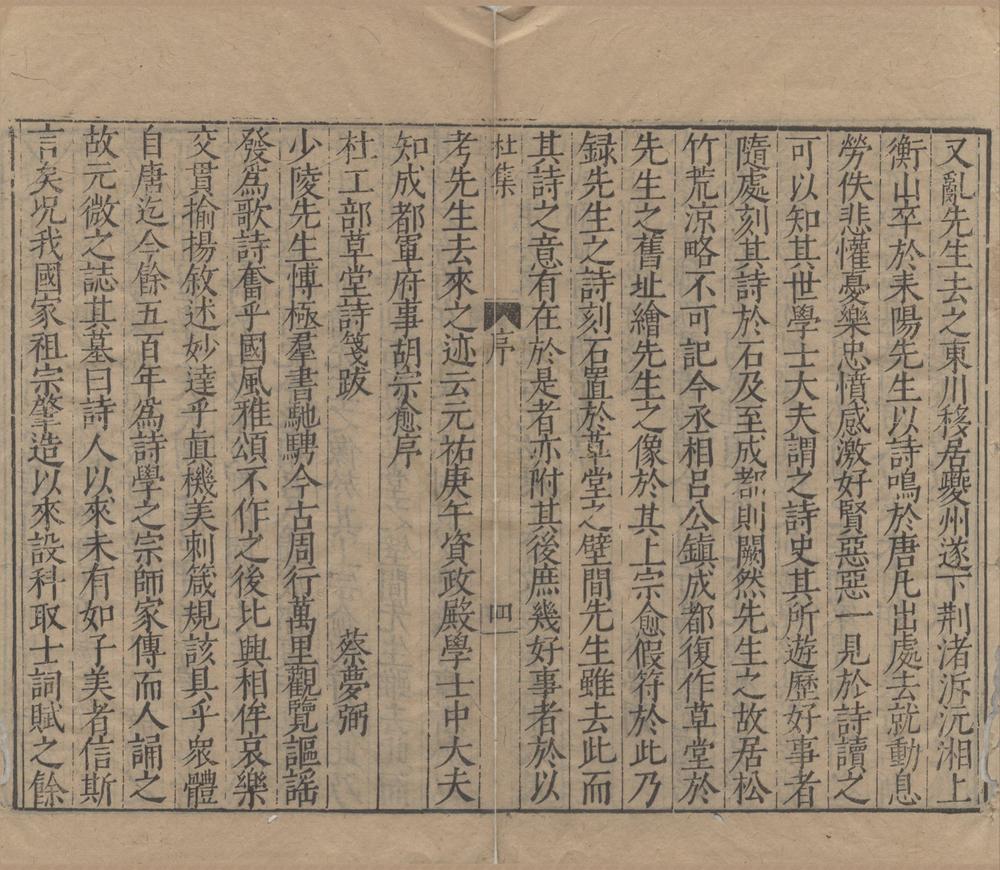 又亂先生去之東川移居夔州遂下荆渚泝沅湘上
衡山卒於耒陽先生以詩鳴於唐凡出處去就動息
勞佚悲懽憂樂忠憤感激好賢惡惡一見於詩讀之
可以知其世學士大夫謂之詩史其所遊歷好事者
隨處刻其詩於石及至成都則闕然先生之故居松
竹荒凉略不可記今丞相呂公鎮成都復作草堂於
先生之舊址繪先生之像於其上宗愈假符於此乃
録先生之詩刻石置於草堂之壁間先生雖去此而
其詩之意有在於是者亦附其後庶幾好事者於以
杜集 序 四
考先生去來之迹云元祐庚午資政殿學士中大夫
知成都軍府事胡宗愈序
杜工部草堂詩箋跋 蔡夢弼
少陵先生博極羣書馳騁今古周行萬里觀覽謳謡
發爲歌詩奮乎國風雅頌不作之後比興相侔哀樂
交貫揄揚敘述妙達乎直機美刺箴規該具乎衆體
自唐迄今餘五百年爲詩學之宗師家傳而人誦之
故元微之誌其墓曰詩人以來未有如子美者信斯
言矣况我國家祖宗肇造以來設科取士詞賦之餘